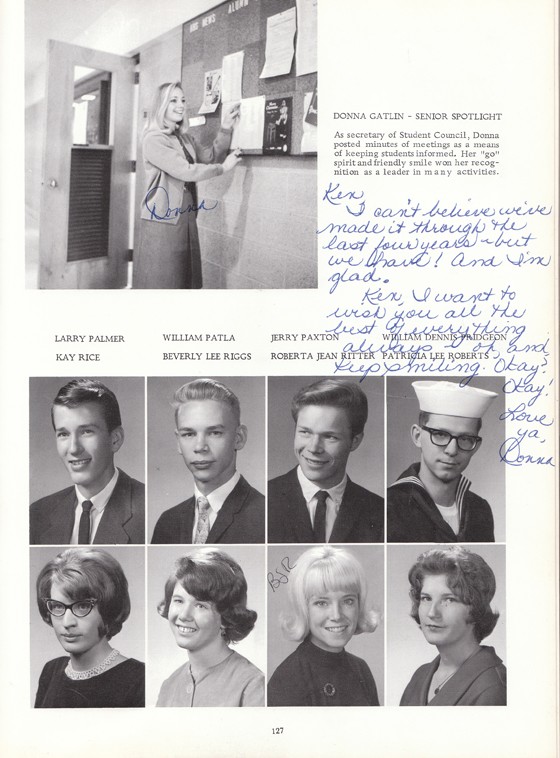 HHS NEWS ALUMN
Donna
DONNA GATLIN - SENIOR SPOTLIGHT
As secretary of Student Council, Donna
posted minutes of meetings as a means
of keeping students informed. Her "go"
spirit and friendly smile won her recog-
nition as a leader in many activities.
Ken,
I can't believe we've
made it through the
last four years - but
we have! And I'm
glad.
Ken, I want to
wish you all the
best of everything
always and
keep smiling. Okay?
Okay!
Love
ya,
Donna
LARRY PALMER WILLIAM PATLA JERRY PAXTON WILLIAM DENNIS PRIDGEON
KAY RICE BEVERLY LEE RIGGS ROBERTA JEAN RITTER PATRICIA LEE ROBERTS
BJR
127